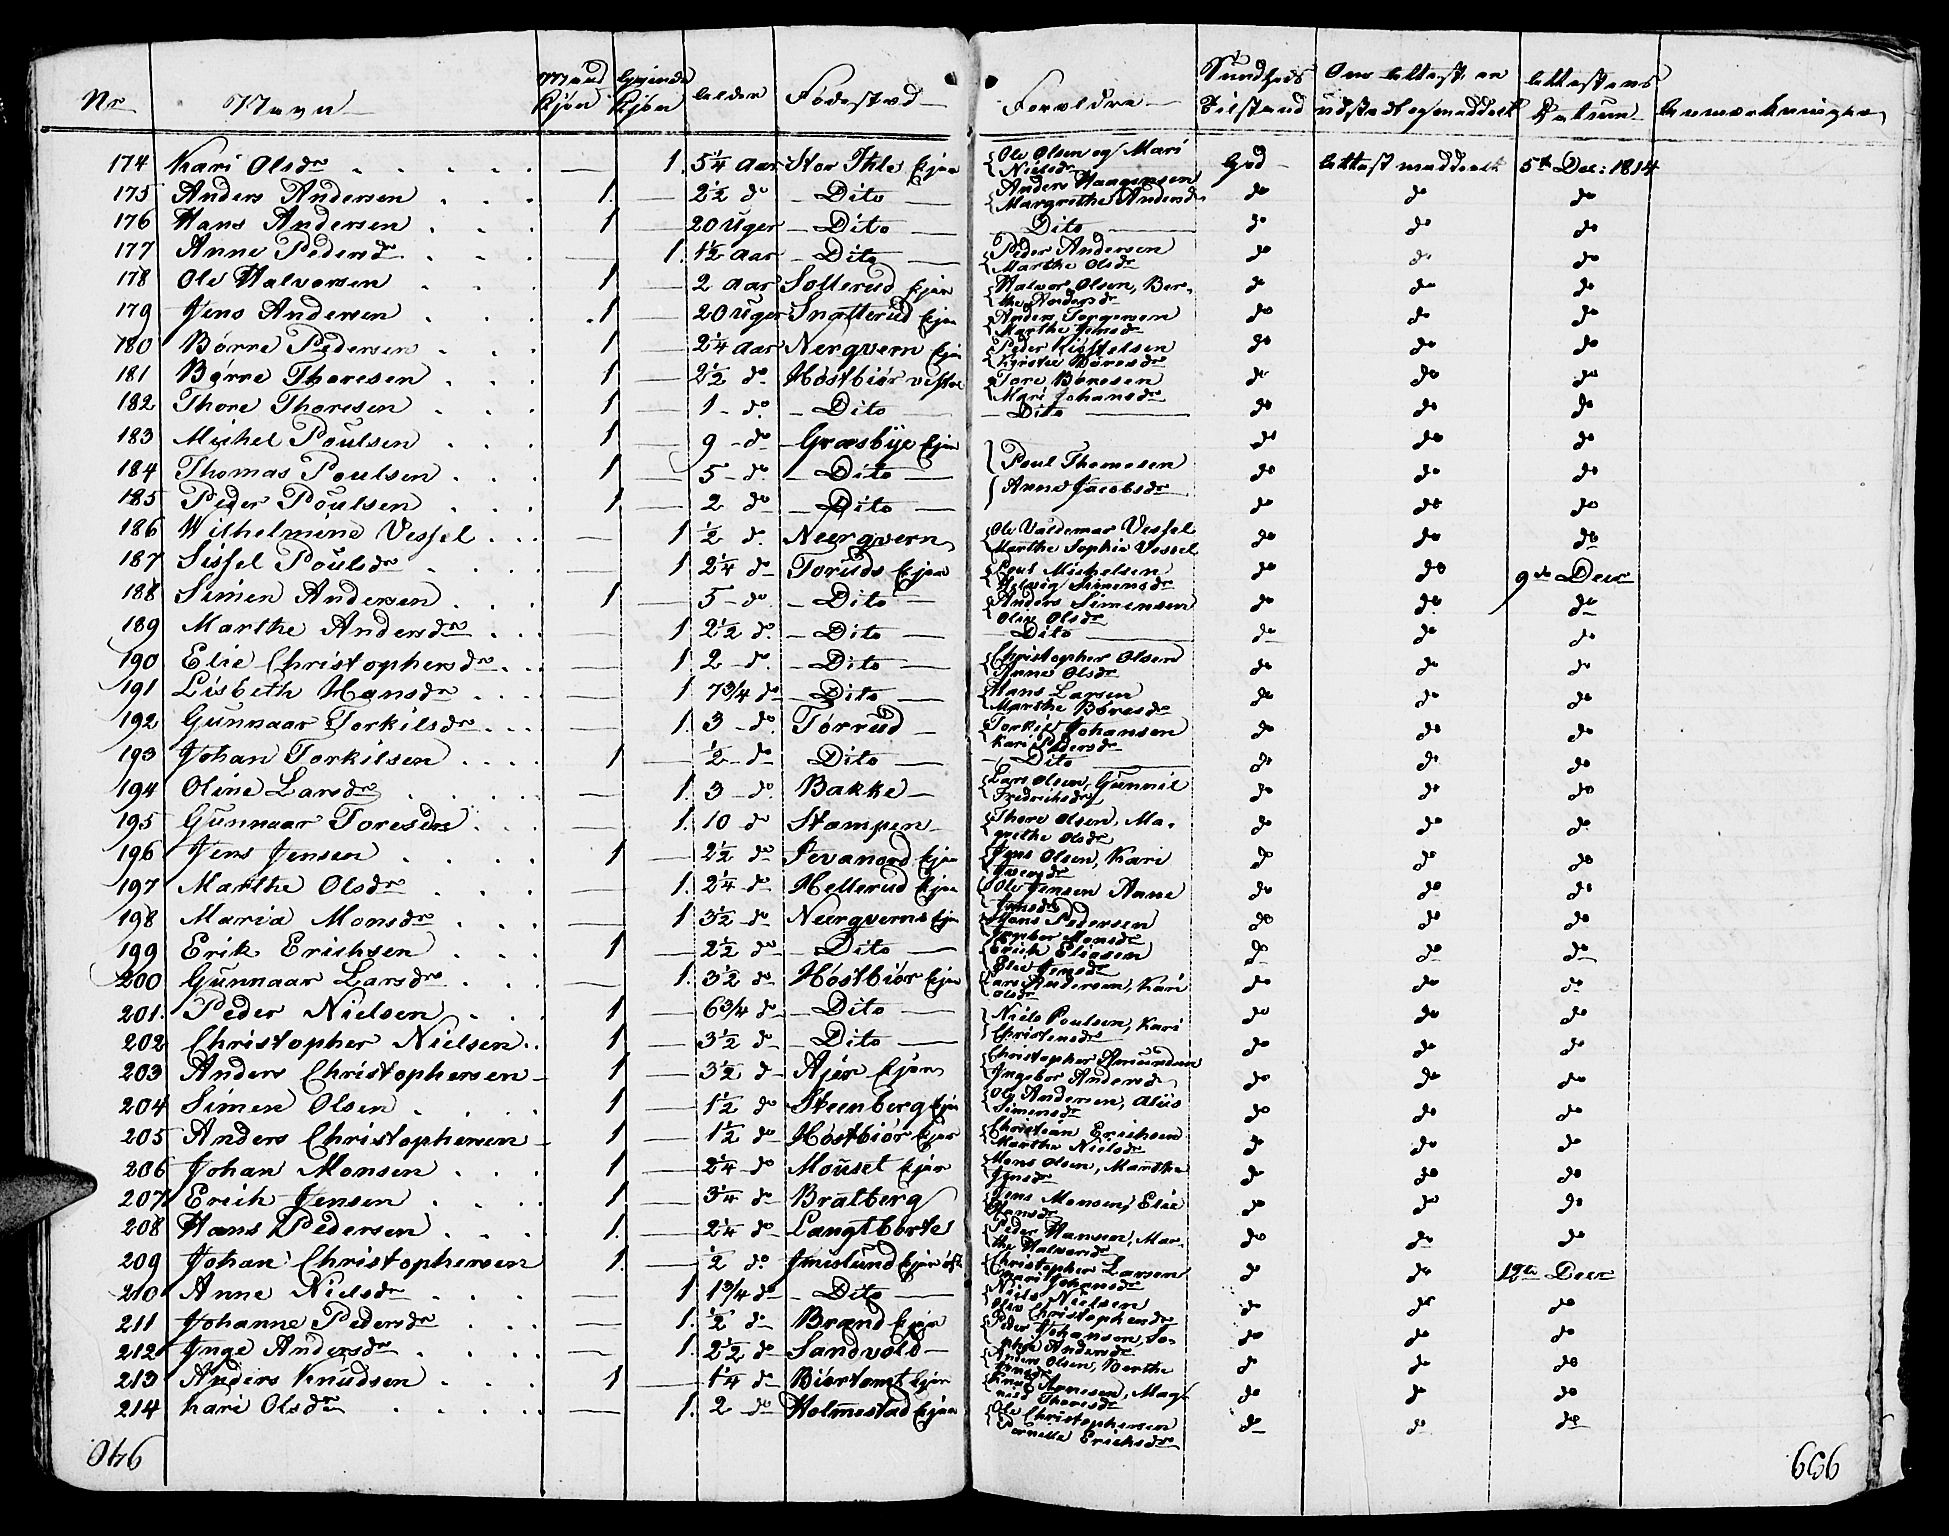 Nr Navn Mand Kjøn Qvinde Kjøn Alder Fødested Forældre Sundheds Tilstand Om Attest er udstedt og meddeelt Attestens Datum Anmærkninger
174 Kari Olsdr — 1. 5¼ Aar Stor Ihle Ejer Ole Olsen og Mari Nielsdr God Attest meddeelt 5te Dec: 1814
175 Anders Andersen 1. — 2½ do Dito Anders Haagensen Margrethe Andersdr do do do
176 Hans Andersen 1 — 20 Uger Dito Dito do do do
177 Anne Pedersdr — 1. 1½ Aar Dito Peder Andersen Marthe Olsdr do do do
178 Ole Halvorsen 1 — 2 Aar Sollerud Ejer Halvor Olsen, Berthe Andersdr do do do
179 Jens Andersen 1 — 20 Uger Snatterud Ejer Anders Torgersen Marthe Jensdr do do do
180 Børre Pedersen 1 — 2¼ Aar Nerqvern Ejer Peder Kiostelsen Kirstie Børesdr do do do
181 Børre Thoresen 1 — 2½ do Høstbiør vestre Tore Børesen Mari Johansdr do do do
182 Thore Thoresen 1 — 1 do Dito Dito do do do
183 Michel Poulsen 1 — 9 do Græsbye Ejer do do do
184 Thomas Poulsen 1 — 5 do Dito Poul Thomesen do do do
185 Peder Poulsen 1 — 2 do Dito Anne Jacobsdr do do do
186 Wilhelmine Vessel — 1 ½ do Neerqvern Ole Valdemar Vessel Marthe Sophie Vessel do do do
187 Sissel Poulsdr — 1 2¼ do Toruds Ejer Poul Michelsen Helvig Simensdr do do 9de Decr
188 Simen Andersen 1 — 5 do Dito Anders Simensen Olive Olsdr do do do
189 Marthe Andersdr — 1 2½ do Dito Dito do do do
190 Elie Christophersdr — 1. 2 do Dito Christopher Olsen Anne Olsdr do do do
191 Lisbeth Hansdr — 1 7¾ do Dito Hans Larsen Marthe Børesdr do do do
192 Gunnaar Torkilsdr — 1. 3 do Torrud Torkild Johansen Kari Pedersdr do do do
193 Johan Torkilsen 1 ½ do Dito Dito do do do
194 Oline Larsdr — 1. 3 do Bakke Lars Olsen, Gunnil Fredrichsdr do do do
195 Gunnaar Toresdr — 1. 10 do Stampen Thore Olsen, Magrethe Olsdr do do do
196 Jens Jensen 1 — 2½ do Sevanord Ejer Jens Olsen, Kari Iversdr do do do
197 Marthe Olsdr — 1. 2¼ do Hellerud Ejer Ole Jensen Anne Jensdr do do do
198 Maria Monsdr — 1 3½ do Neerqverns Ejer Hans Pedersen Ingebor Monsdr do do do
199 Erik Erichsen 1 — 2½ do Dito Erich Eliesen Elie Jensdr do do do
200 Gunnaar Larsdr — 1. 3½ do Høstbiør Ejer Lars Andersen, Kari Olsdr do do do
201. Peder Nielsen 1 — 6¾ do Dito Niels Poulsen, Kari do do do
202 Christopher Nielsen 1 — 3½ do Dito Christensdr do do do
203 Anders Christophersen 1 — 3½ do Ajer Ejer Christopher Amundsen Ingebor Andersdr do do do
204 Simen Olsen 1 — 1½ do Steenberg Ejer Ole Andersen, Aliis Simensdr do do do
205 Anders Christophersen 1 — 1½ do Høstbiør Ejer Christian Erichsen Marthe Nielsdr do do do
206 Johan Monsen 1 — 2¼ do Mouset Ejer Mons Olsen, Marthe Jensdr do do do
207 Erich Jensen 1 — 3¼ do Bratberg Jens Monsen, Elie Hansdr do do do
208 Hans Pedersen 1. — 2¼ do Langtborte Peder Hansen, Marthe Halvorsdr do do do
209 Johan Christophersen 1 — ½ do Imislund Ejer Christopher Larsen Mari Johansdr do do 12te Decr
210 Anne Nielsdr — 1 1¾ do Dito Niels Nielsen Olive Christophersdr do do do
211 Johanne Pedersdr — 1. ½ do Brænd Ejer Peder Johansen, Sophie Andersdr do do do
212 Inge Andersdr — 1. 2½ do Sandvold Anders Olsen, Berthe Jensdr do do do
213 Anders Knudsen 1 — 1¼ do Biørtomt Ejer Knud Arnesen, Magnild Thoresdr do do do
214 Kari Olsdr — 1. 2 do Holmestad Ejer Ole Christophersen Pernelle Erichsdr do do do